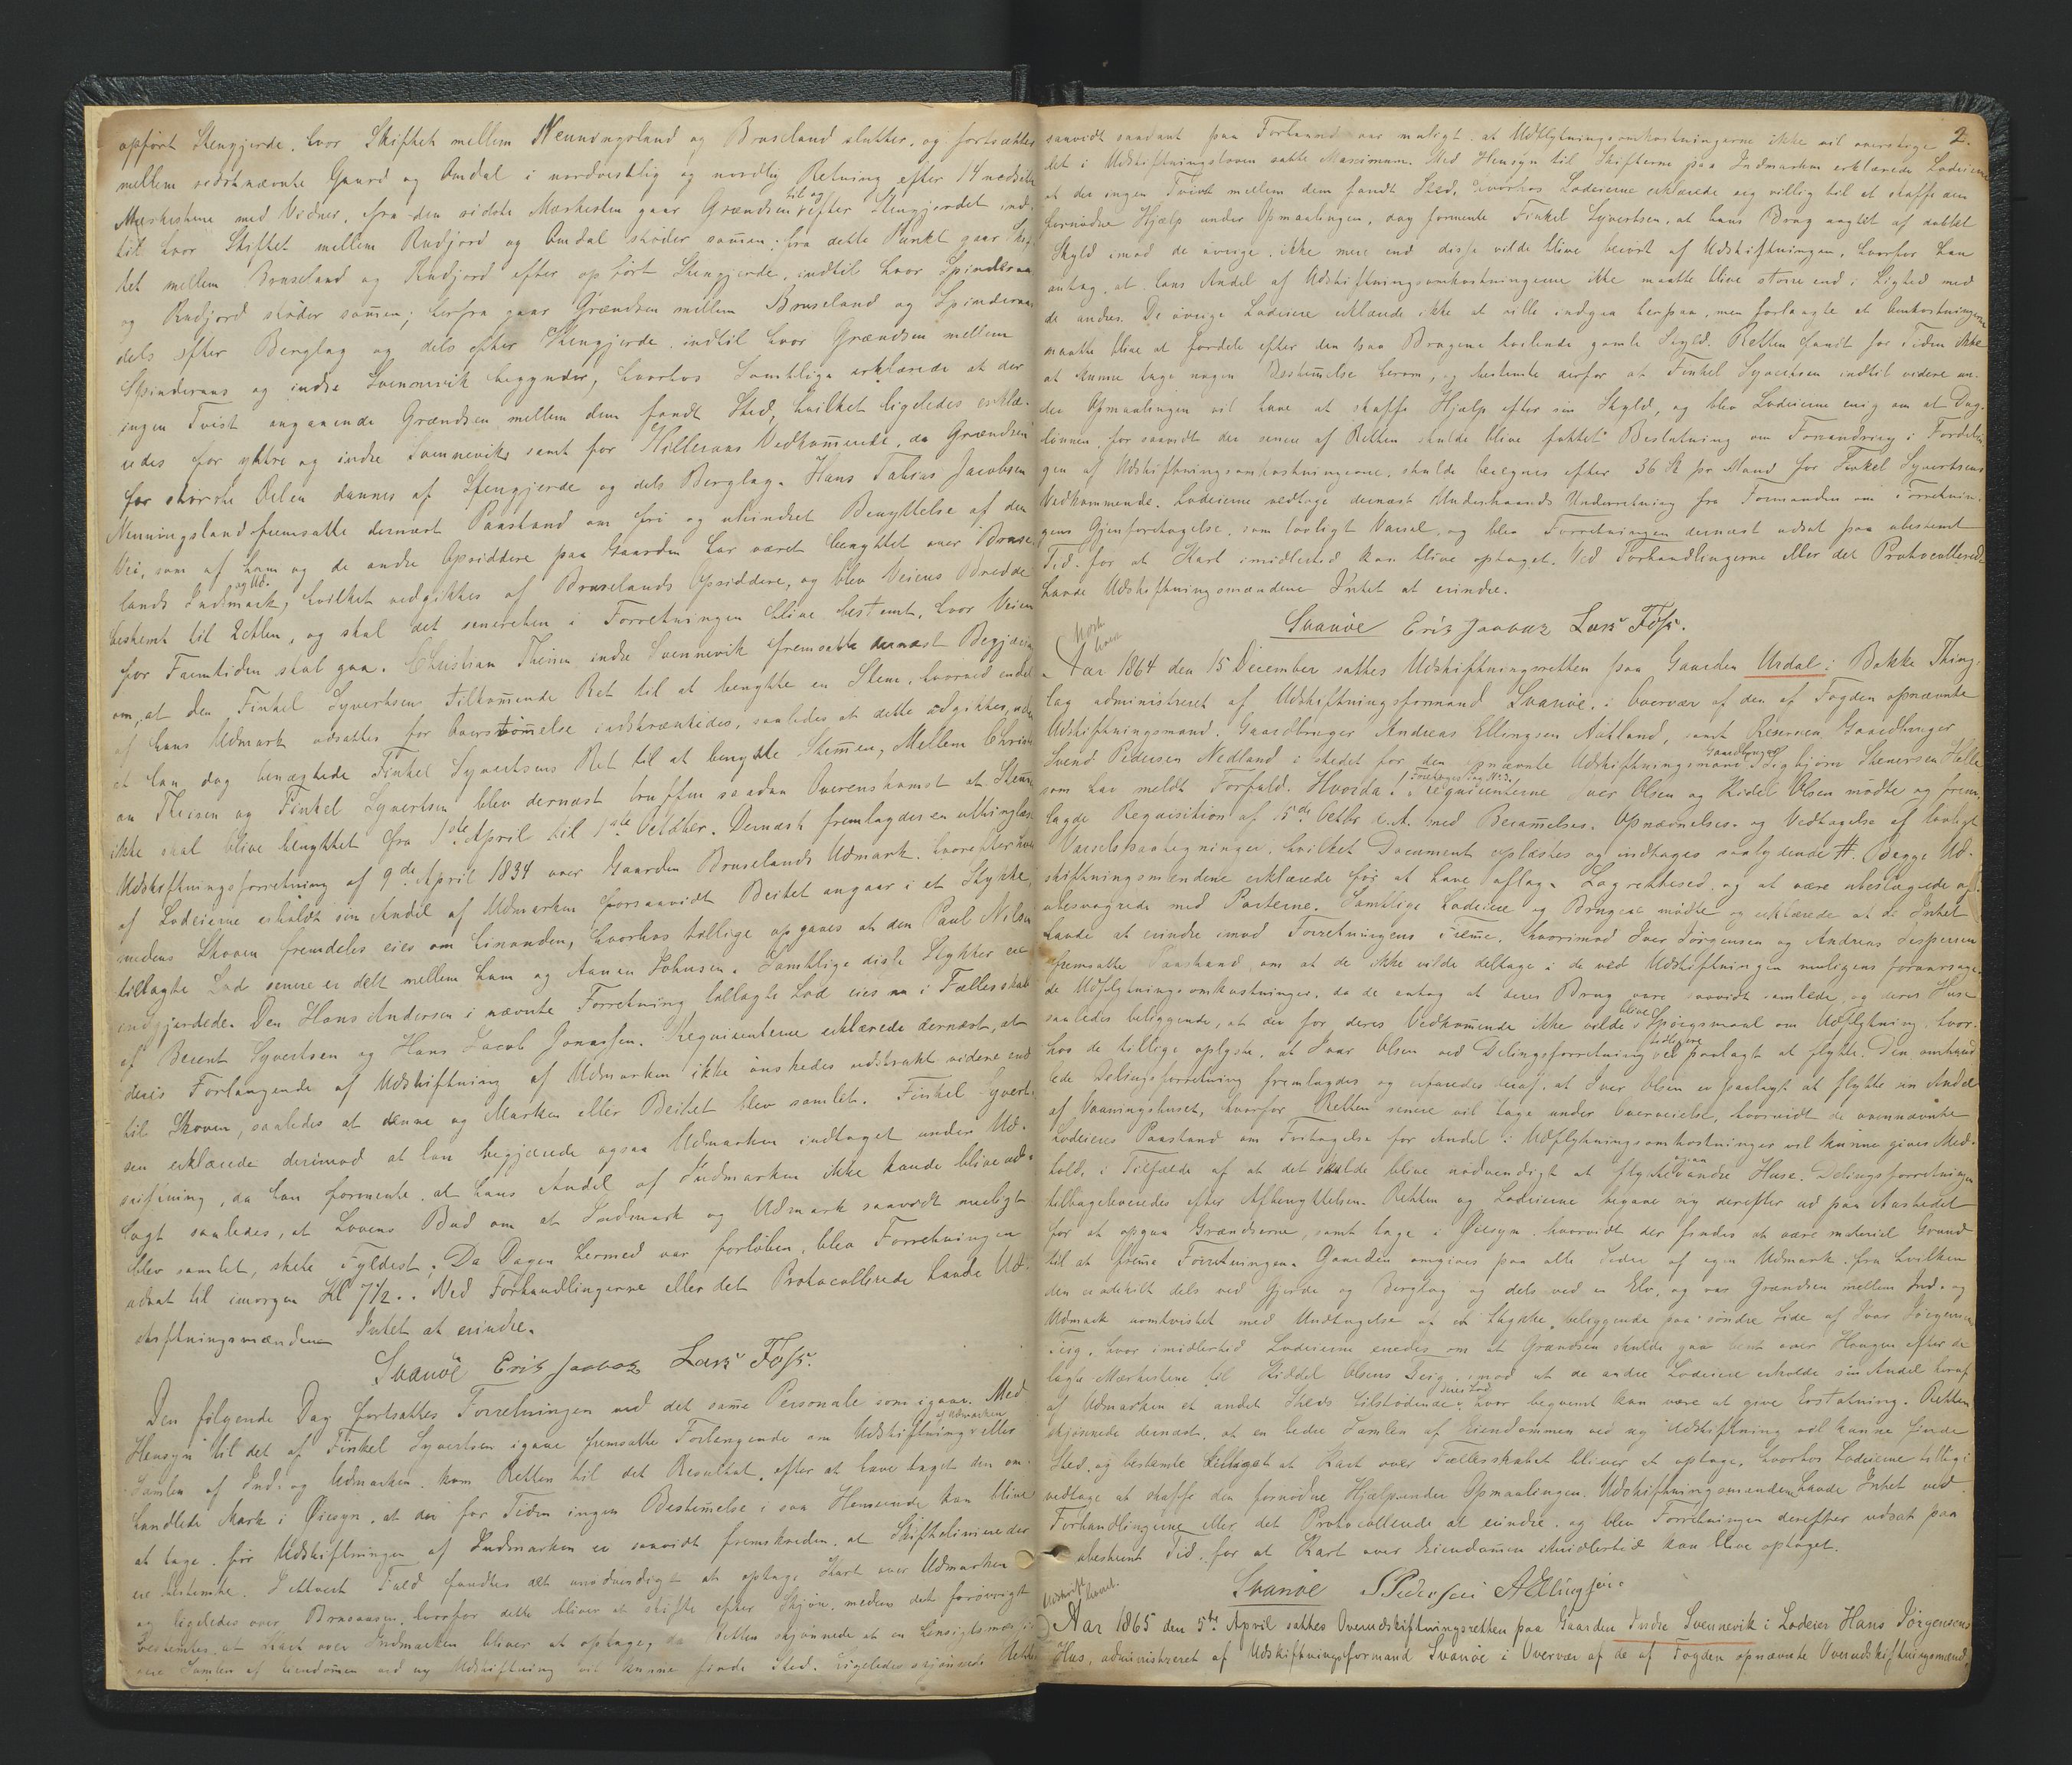 opført Stengjerde, hvor Skiftet mellem Nenningsland og Bruseland slutter, og fortsætter
mellem sidstnævnte Gaard og Omdal i nordvestlig og nordlig Retning efter 14 nedsatte
Merkestene med Vidner, fra den sidste Merkesten gaar Grændsen til og efter Stengjerdet ind-
til hvor Skiftet mellem Rudjord og Omdal støder sammen; fra dette Punkt gaar Skif-
tet mellem Bruseland og Rudjord efter opført Stengjerde, indtil hvor Spinderaas
og Rudjord støder sammen; herfra gaar Grændsen mellem Bruseland og Spinderaas
dels efter Berglag og dels efter Stengjerde, indtil hvor Grændsen mellem
Spinderaas og indre Svennevik begynder, hvorhos Samtlige erklærede at der
ingen Tvist angaaende Grændsen mellem dem fandt Sted, hvilket ligeledes erklæ-
redes for yttre og indre Svennevik samt for Hilleraas Vedkommende, da Grændsen
for største Delen dannes af Stengjerde og dels Berglag. Hans Tobias Jacobsen
Nenningsland fremsatte dernæst Paastand om fri og uhindret Benyttelse af den
Vei, som af ham og de andre Opsiddere paa Gaarden har været benyttet over Bruse-
lands Indmark, og Ud- hvilket vedgikkes af Bruselands Opsiddere, og blev Veiens Bredde
bestemt til 2 Alen, og skal det senerehen i Forretningen blive bestemt, hvor Veien
for Fremtiden skal gaa. Christian Theisen indre Svennevik fremsatte dernæst Begjæring
om, at den Finkel Syvertsen tilkommende Ret til at benytte en Stem, hvorved endel
af hans Udmark udsattes for Oversvømmelse indskrænkedes, saaledes at dette undgikkes, uden
at han dog benægtede Finkel Syvertsens Ret til at benytte Stemmen, Mellem Christi-
an Theisen og Finkel Syvertsen blev dernæst truffen saadan Overenskomst at Stemmen
ikke skal blive benyttet fra 1ste April til 1ste Oktober. Dernæst fremlagdes en uthinglæst
Udskiftningsforretning af 9de April 1834 over Gaarden Bruselands Udmark, hvorefter hver
af Lodeierne erholdt sin Andel af Udmarken forsaavidt Beitet angaar i et Stykke,
medens Skoven fremdeles eies om hinanden, hvorhos tillige opgaves at den Paul Nilsen
tillagte Lod senere er delt mellem ham og Aanen Johnsen. Samtlige disse Stykker ere
indgjerdede. Den Hans Andersen i nævnte Forretning tillagte Lod eies nu i Fællesskab
af Berent Syvertsen og Hans Jacob Jonassen. Requirenterne erklærede dernæst, at
deres Forlangende af Udskiftning af Udmarken ikke ønskedes udstrakt videre end
til Skoven, saaledes at denne og Marken eller Beitet blev samlet. Finkel Syvert-
sen erklærede derimod at han begjærede ogsaa Udmarken indtaget under Ud-
skiftning, da han formente, at hans Andel af Indmarken ikke kunde blive ud-
lagt saaledes, at Lovens Bud om at Indmark og Udmark saavidt muligt
blev samlet, skete Fyldest. Da Dagen hermed var forløben, blev Forretningen
udsat til imorgen Kl 7½. Ved Forhandlingerne eller det Protocollerede havde Ud-
skiftningsmændene Intet at erindre.
Svanøe Erik Jaabæk Lars Foss.
Den følgende Dag fortsattes Forretningen ved det samme Personale som igaar. Med
Hensyn til det af Finkel Syvertsen igaar fremsatte Forlangende om Udskiftning af Udmarken eller
Samlen af Ind- og Udmarken, kom Retten til det Resultat, efter at have taget den om-
handlede Mark i Øiesyn, at der for Tiden ingen Bestemmelse i saa Henseende kan blive
at tage, før Udskiftningen af Indmarken er saavidt fremskreden, at Skiftelinierne der
ere bestemte. I ethvert Fald fandtes det unødvendigt at optage Kart over Udmarken
og ligeledes over Bruaasen, hvorfor dette bliver at skifte efter Skjøn, medens det forøvrigt
bestemtes, at Kart over Indmarken bliver at optage, da Retten skjønnede at en hensigtsmæssi-
gere Samlen af Eiendommen ved ny Udskiftning vil kunne finde Sted. Ligeledes skjønnede Retten
2.
saavidt saadant paa Forhaand var muligt, at Udflytningsomkostningerne ikke vil overstige
det i Udskiftningsloven satte Maximum. Med Hensyn til Skifterne paa Indmarken erklærede Lodeierne
at der ingen Tvist mellem dem fandt Sted, hvorhos Lodeierne erklærede sig villig til at skaffe den
fornødne Hjælp under Opmaalingen, dog formente Finkel Syvertsen, at hans Brug uagtet af dobbelt
Skyld imod de øvrige, ikke mere end disse vilde blive berørt af Udskiftningen, hvorfor han
antog, at hans Andel af Udskiftningsomkostningerne ikke maatte blive større end i Lighed med
de andres. De øvrige Lodeiere erklærede ikke at ville indgaa herpaa, men forlangte at Omkostningerne
maatte blive at fordele efter den paa Brugene hvilende gamle Skyld. Retten fandt for Tiden ikke
at kunne tage nogen Bestemmelse herom, og bestemte derfor at Finkel Syvertsen indtil videre un-
der Opmaalingen vil have at skaffe Hjælp efter sin Skyld, og blev Lodeierne enig om at Dag-
lønnen, for saavidt der senere af Retten skulde blive fattet Beslutning om Forandring i Fordelin-
gen af Udskiftningsomkostningerne, skulde beregnes efter 36 Sk pr Mand for Finkel Syvertsens
Vedkommende. Lodeierne vedtoge dernæst Underhaands Underretning fra Formanden om Forretnin-
gens Gjenforetagelse, som lovligt Varsel, og blev Forretningen dernæst udsat paa ubestemt
Tid, for at Kart imidlertid kan blive optaget. Ved Forhandlingerne eller det Protocollerede
havde Udskiftningsmændene Intet at erindre.
Svanøe Erik Jaabæk Lars Foss.
Aar 1864 den 15 December sattes Udskiftningsretten paa Gaarden Urdal i Bakke Thing-
lag administreret af Udskiftningsformand Svanøe, i Overvær af den af Fogden opnævnte
Udskiftningsmand, Gaardbruger Andreas Ellingsen Aatland, samt Reserven Gaardbruger
Svend Pedersen Nedland i stedet for den opnævnte Udskiftningsmand Gaardbruger Sigbjørn Stenersen Helle
som har meldt Forfald. Hvorda: Foretoges Sag No 3. Requirenterne Iver Olsen og Kidel Olsen mødte og frem-
lagde Requisition af 15de Octbr d.A. med Berammelses- Opnævnelses- og Vedtagelse af lovligt
Varselspaategninger, hvilket Document oplæstes og indtages saalydende #. Begge Ud-
skiftningsmændene erklærede før at have aflagt Lagrettesed, og at være ubeslægtede og
ubesvogrede med Parterne. Samtlige Lodeiere og Brugere mødte og erklærede at de Intet
havde at erindre imod Forretningens Fremme, hvorimod Iver Jørgensen og Andreas Jespersen
fremsatte Paastand om at de ikke vilde deltage i de ved Udskiftningen muligens foraarsage-
de Udflytningsomkostninger, da de antog at deres Brug vare saavidt samlede, og deres Huse
saaledes beliggende, at der for deres Vedkommende ikke vilde blive Spørgsmaal om Udflytning, hvor-
hos de tillige oplyste, at Ivar Olsen ved Delingsforretning tidligere er paalagt at flytte. Den omhand-
lede Delingsforretning fremlagdes og erfaredes deraf, at Iver Olsen er paalagt at flytte sin Andel
af Vaaningshuset, hvorfor Retten senere vil tage under Overveielse, hvorvidt de ovennævnte
Lodeieres Paastand om Fritagelse for Andel i Udflytningsomkostninger vil kunne gives Med-
hold, i Tilfælde af at det skulde blive nødvendigt at flytte ogsaa andre Huse. Delingsforretningen
tilbageleveredes efter Afbenyttelsen. Retten og Lodeierne begave sig derefter ud paa Aastedet
for at opgaa Grændserne, samt tage i Øiesyn, hvorvidt der findes at være materiel Grund
til at fremme Forretningen. Gaarden omgives paa alle Sider af egen Udmark, fra hvilken
den er adskilt dels ved Gjerde og Berglag og dels ved en Elv, og var Grændsen mellem Ind- og
Udmark uomtvistet med Undtagelse af et Stykke, beliggende paa søndre Side af Ivar Jørgensens
Teig, hvor imidlertid Lodeierne enedes om at Grændsen skulde gaa bent over Haugen efter de
lagte Merkestene til Kiddel Olsens Teig, imod at de andre Lodeiere erholde sin Andel heraf
af Udmarken et andet Steds tilstødende deres Lod, hvor beqvemt kan være at give Erstatning. Retten
skjønnede dernæst, at en bedre Samlen af Eiendommen ved ny Udskiftning vil kunne finde
Sted, og bestemte at Kart over Fællesskabet bliver at optage, hvorhos Lodeierne tillige
vedtoge at skaffe den fornødne Hjælp under Opmaalingen. Udskiftningsmændene havde Intet ved
Forhandlingerne eller det Protocollerede at erindre, og blev Forretningen derefter udsat paa
ubestemt Tid, for at Kart over Eiendommen imidlertid kan blive optaget.
Svanøe S Pedersen A Ellingsen
Aar 1865 den 5te April sattes Overudskiftningsretten paa Gaarden Indre Svennevik i Lodeier Hans Jørgensens
Hus, administreret af Udskiftningsformand Svanøe i Overvær af de af Fogden opnævnte Overudskiftningsmænd,